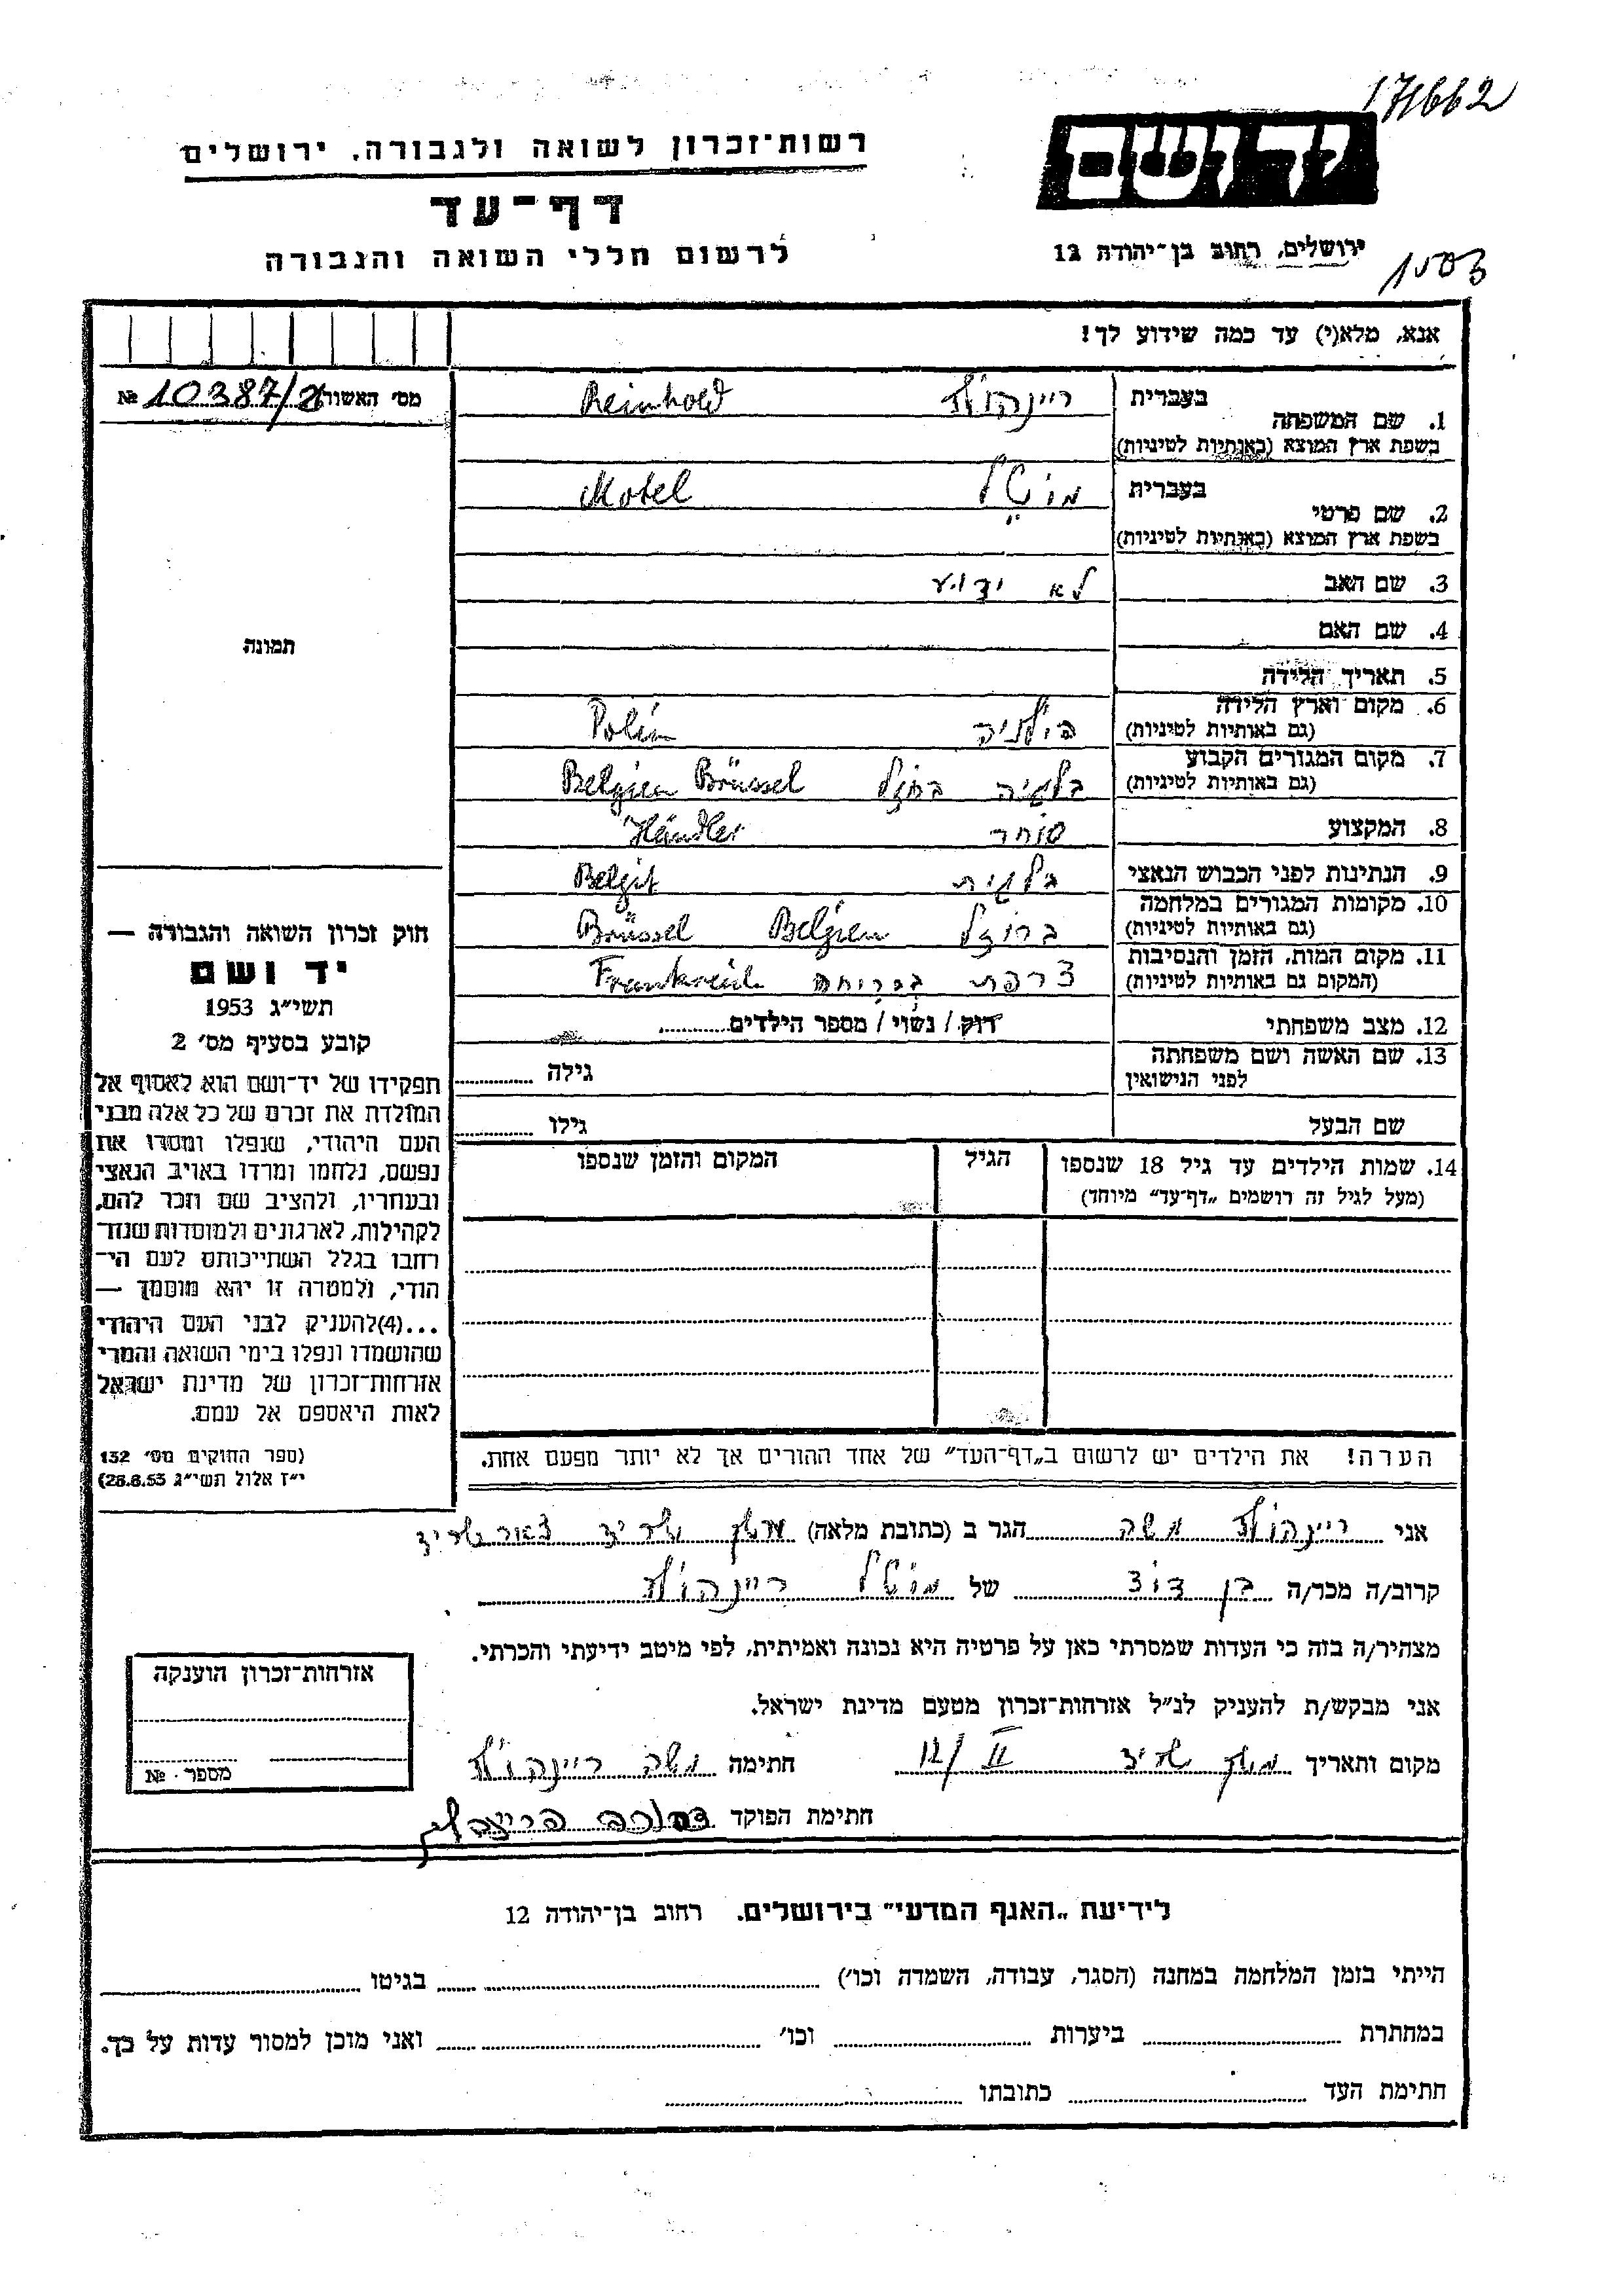 171662
רשות־זכרון לשואה ולגבורה, ירושלים
יד ושם
דף־עד
לרשום חללי השואה והגבורה
ירושלים, רחוב בן־יהודה 12
אנא, מלא(י) עד כמה שידוע לך!
מס׳ האשור № 10387/2
בעברית ריינהולד Reinhold
1. שם המשפחה
בשפת ארץ המוצא (באותיות לטיניות)
בעברית מוטל Motel
2. שם פרטי
בשפת ארץ המוצא (באותיות לטיניות)
3. שם האב לא ידוע
4. שם האם
תמונה
5. תאריך הלידה
6. מקום וארץ הלידה פולניה Polen
(גם באותיות לטיניות)
7. מקום המגורים הקבוע בלגיה בריסל Belgien Brüssel
(גם באותיות לטיניות)
8. המקצוע סוחר Händler
9. הנתינות לפני הכבוש הנאצי בלגית Belgit
10. מקומות המגורים במלחמה Brüssel Belgien
(גם באותיות לטיניות)
11. מקום המות, הזמן והנסיבות צרפת בבריחה Frankreich
(המקום גם באותיות לטיניות)
12. מצב משפחתי רוק / נשוי / מספר הילדים
13. שם האשה ושם משפחתה גילה
לפני הנישואין
שם הבעל גילו
חוק זכרון השואה והגבורה —
יד ושם
תשי״ג 1953
קובע בסעיף מס׳ 2
תפקידו של יד־ושם הוא לאסוף אל
המולדת את זכרם של כל אלה מבני
העם היהודי, שנפלו ומסרו את
נפשם, נלחמו ומרדו באויב הנאצי
ובעוזריו, ולהציב שם וזכר להם,
לקהילות, לארגונים ולמוסדות שנח־
רבו בגלל השתייכותם לעם הי־
הודי, ולמטרה זו יהא מוסמך —
...(4)להעניק לבני העם היהודי
שהושמדו ונפלו בימי השואה והמרי
אזרחות־זכרון של מדינת ישראל
לאות היאספם אל עמם.
(ספר החוקים מס׳ 132
י״ז אלול תשי״ג 28.8.53)
14. שמות הילדים עד גיל 18 שנספו הגיל המקום והזמן שנספו
(מעל לגיל זה רושמים „דף־עד״ מיוחד)
הערה! את הילדים יש לרשום ב„דף־העד״ של אחד ההורים אך לא יותר מפעם אחת.
אני ריינהולד משה הגר ב (כתובת מלאה)
קרוב/ה מכר/ה בן דוד של מוטל ריינהולד
מצהיר/ה בזה כי העדות שמסרתי כאן על פרטיה היא נכונה ואמיתית, לפי מיטב ידיעתי והכרתי.
אני מבקש/ת להעניק לנ״ל אזרחות־זכרון מטעם מדינת ישראל.
מקום ותאריך 12/ II חתימה משה ריינהולד
חתימת הפוקד
אזרחות־זכרון הוענקה
מספר №
לידיעת „האגף המדעי״ בירושלים, רחוב בן־יהודה 12
הייתי בזמן המלחמה במחנה (הסגר, עבודה, השמדה וכו׳) בגיטו
במחתרת ביערות וכו׳ ואני מוכן למסור עדות על כך.
חתימת העד כתובתו